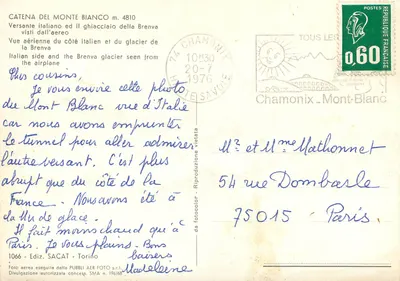 CATENA DEL MONTE BIANCO m. 4810
Versante italiano ed il ghiacciaio della Brenva
visti dall'aereo
Vue aérienne du côté italien et du glacier de
la Brenva
Italian side and the Brenva glacier seen from
the airplane
Chers cousins,
Je vous envoie cette photo
du Mont Blanc vue d'Italie
car nous avons emprunté
le tunnel pour aller admirer
l'autre versant. C'est plus
abrupt que du côté de la
France. Nous avons été à
la Mer de glace.
Il fait moins chaud qu'à
Paris. Je vous plains. Bons
baisers
Madeleine
1066 - Ediz. SACAT - Torino
Foto aerea eseguita dalla PUBBLI AER FOTO
Divulgazione autorizzata
da fotocolor - Riproduzione vietata
74 CHAMONIX
10H30
1976
HTE SAVOIE
TOUS LES
Chamonix_Mont-Blanc
REPUBLIQUE FRANÇAISE
POSTES
0,60
Mr et Mme Mathonnet
54 rue Dombasle
75015 Paris